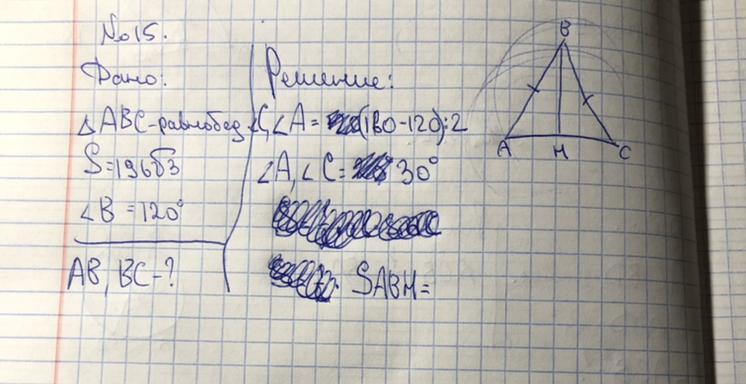 №15.
Дано:
△ABC-равнобед.
S=196√3
∠B=120°
AB, BC-?
Решение:
∠C,∠A=(180-120):2
∠A,∠C=30°
SABH=
B
A
H
C